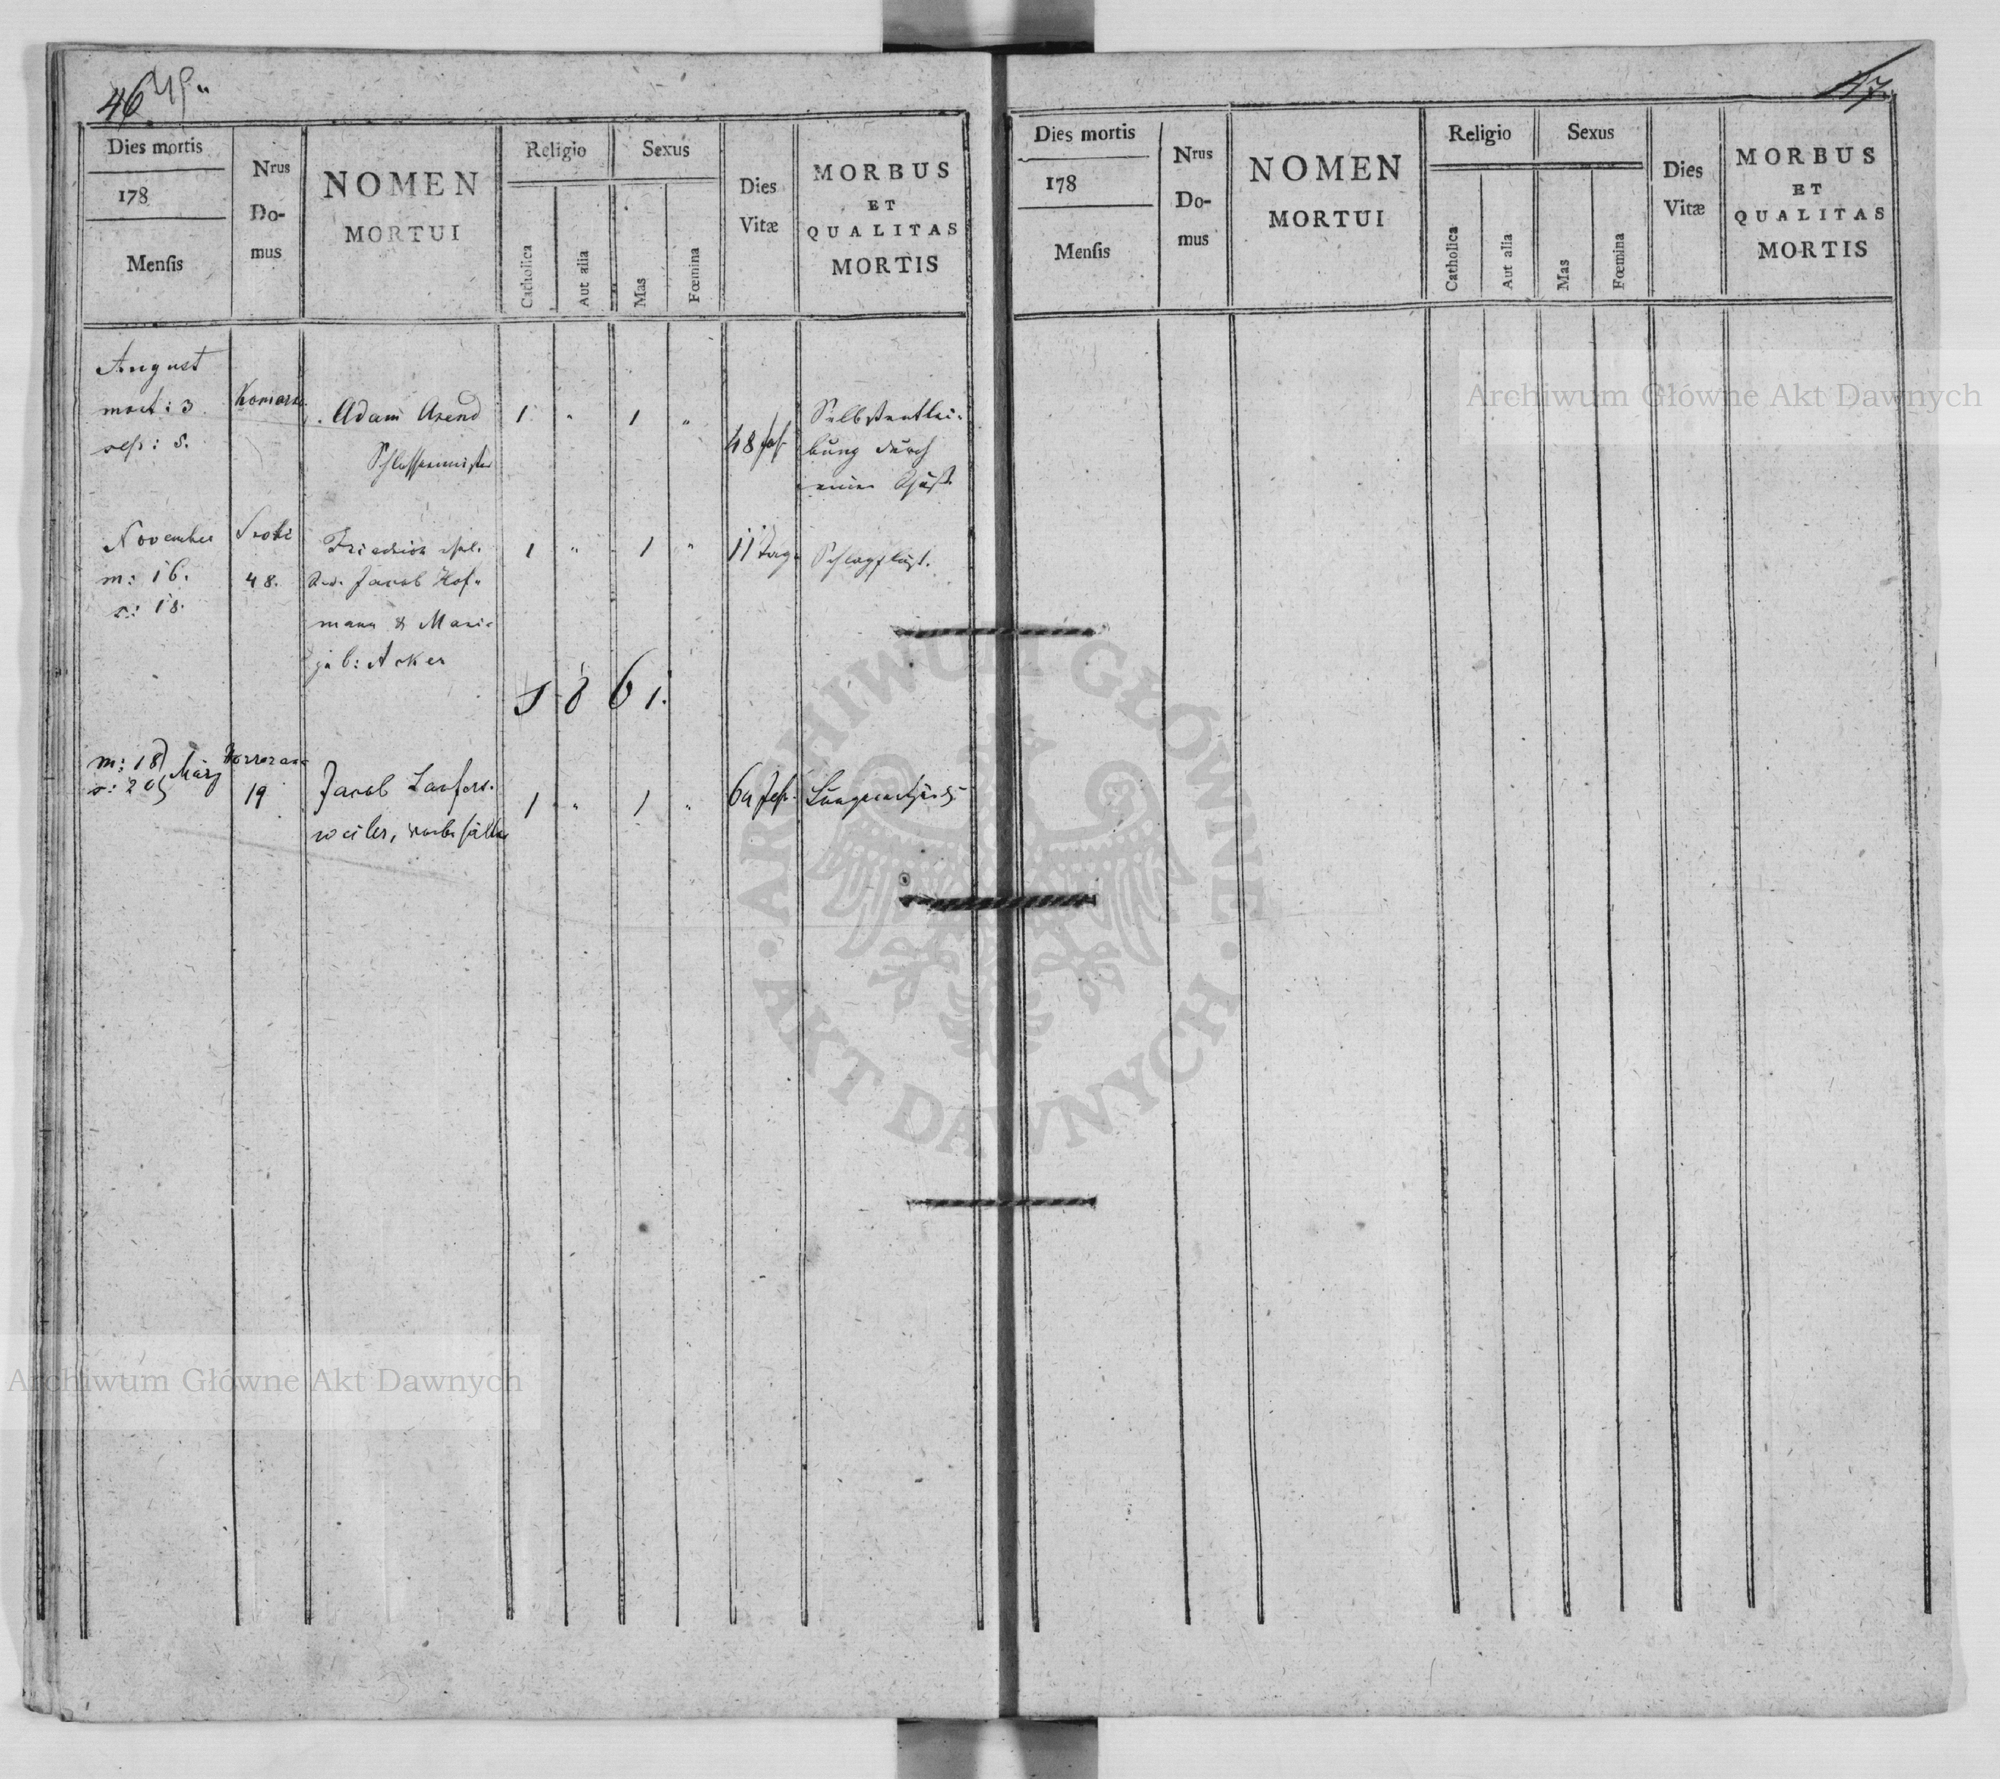 46
Dies mortis
178
Mensis
Nrus
Do-
mus
NOMEN
MORTUI
Religio
Catholica
Aut alia
Sexus
Mas
Fœmina
Dies
Vitæ
MORBUS
ET
QUALITAS
MORTIS
August
mort: 3
sep: 5.
Adam Arend
Schlossermeister
1 " 1 "
48 Jah
Selbstentlei-
bung durch
einen Schuß.
November
m: 16.
s: 18.
48.
Friedrich
Jacob Hof-
mann & Maria
geb: Acker
1 " 1 "
11 Tage
Schlagfluß.
1861.
m: 18
s: 20 März
19
Jacob Laufers-
weiler,
1 " 1 "
Jah.
Lungenentzündg
47.
Dies mortis
178
Mensis
Nrus
Do-
mus
NOMEN
MORTUI
Religio
Catholica
Aut alia
Sexus
Mas
Fœmina
Dies
Vitæ
MORBUS
ET
QUALITAS
MORTIS
Archiwum Główne Akt Dawnych
ARCHIWUM GŁÓWNE
AKT DAWNYCH
Archiwum Główne Akt Dawnych